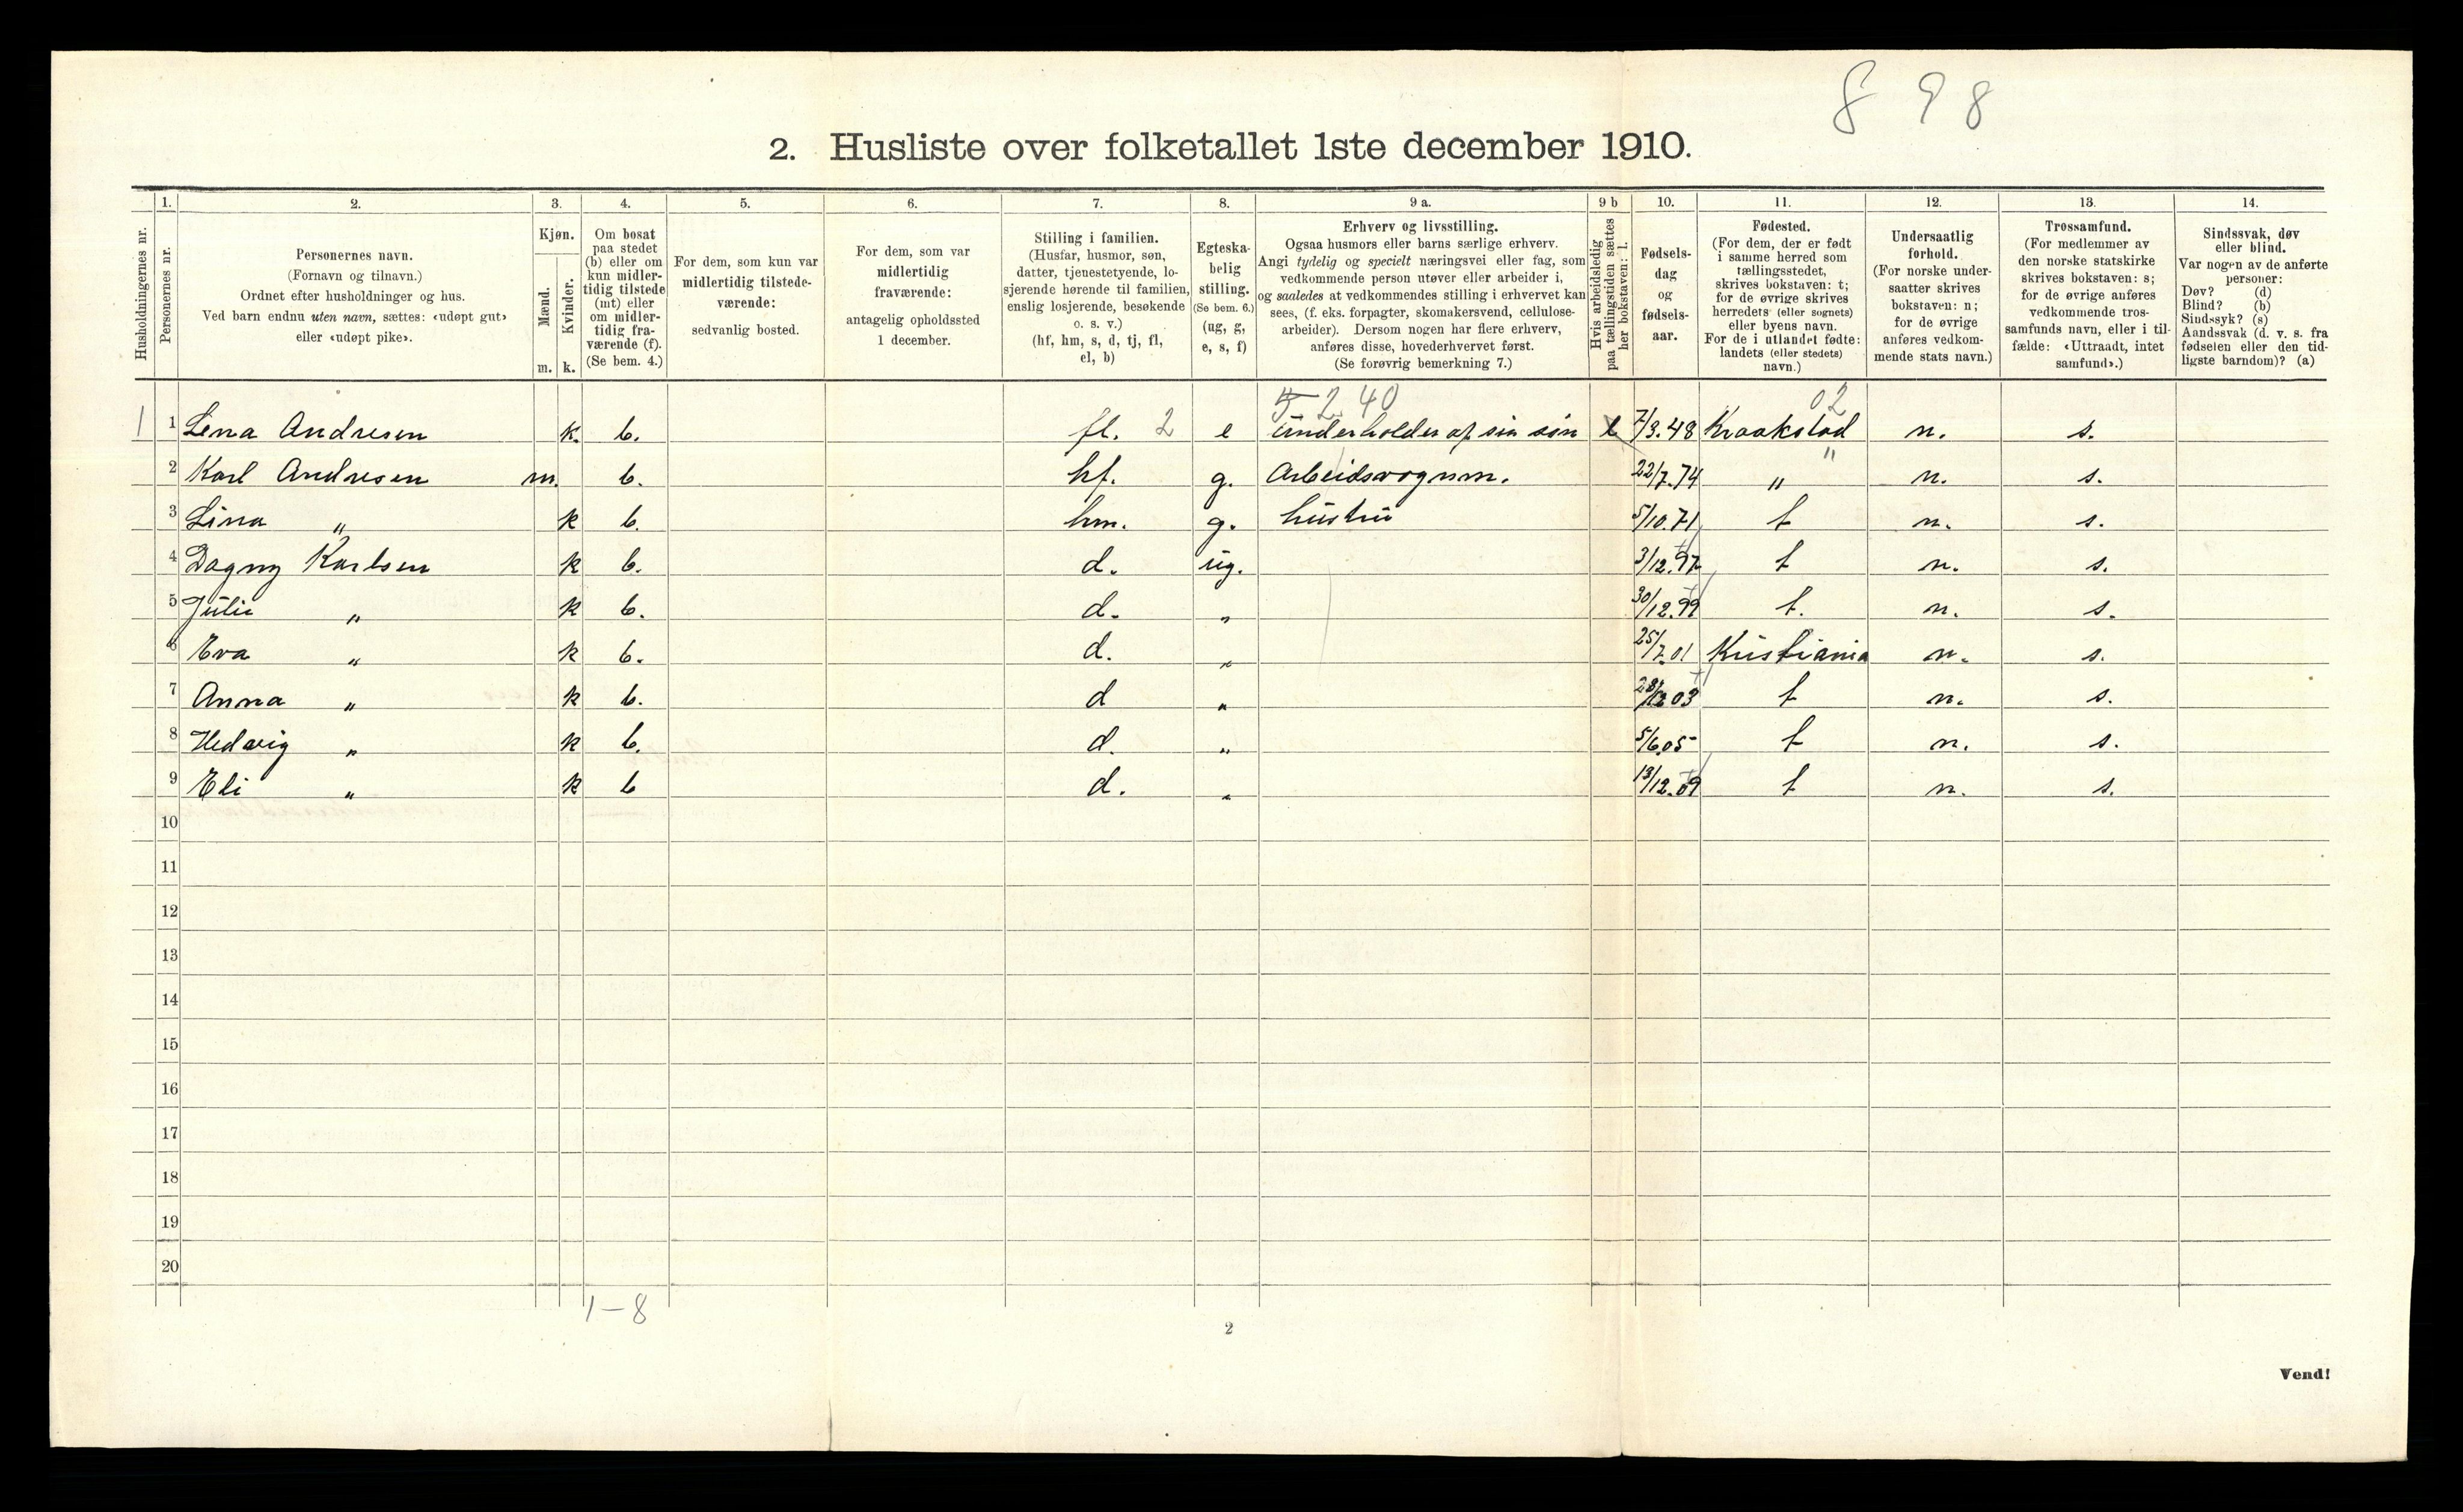 8 9 8
2. Husliste over folketallet 1ste december 1910.
1. 2. 3. 4. 5. 6. 7. 8. 9 a. 9 b 10. 11. 12. 13. 14.
Husholdningernes nr.
Personernes nr.
Personernes navn.
(Fornavn og tilnavn.)
Ordnet efter husholdninger og hus.
Ved barn endnu uten navn, sættes: «udøpt gut»
eller «udøpt pike».
Kjøn.
Mænd.
Kvinder.
m. k.
Om bosat
paa stedet
(b) eller om
kun midler-
tidig tilstede
(mt) eller
om midler-
tidig fra-
værende (f).
(Se bem. 4.)
For dem, som kun var
midlertidig tilstede-
værende:
sedvanlig bosted.
For dem, som var
midlertidig
fraværende:
antagelig opholdssted
1 december.
Stilling i familien.
(Husfar, husmor, søn,
datter, tjenestetyende, lo-
sjerende hørende til familien,
enslig losjerende, besøkende
o. s. v.)
(hf, hm, s, d, tj, fl,
el, b)
Egteska-
belig
stilling.
(Se bem. 6.)
(ug, g,
e, s, f)
Erhverv og livsstilling.
Ogsaa husmors eller barns særlige erhverv.
Angi tydelig og specielt næringsvei eller fag, som
vedkommende person utøver eller arbeider i,
og saaledes at vedkommendes stilling i erhvervet kan
sees, (f. eks. forpagter, skomakersvend, cellulose-
arbeider). Dersom nogen har flere erhverv,
anføres disse, hovederhvervet først.
(Se forøvrig bemerkning 7.)
Hvis arbeidsledig
paa tællingstiden sættes
her bokstaven: l.
Fødsels-
dag
og
fødsels-
aar.
Fødested.
(For dem, der er født
i samme herred som
tællingsstedet,
skrives bokstaven: t;
for de øvrige skrives
herredets (eller sognets)
eller byens navn.
For de i utlandet fødte:
landets (eller stedets)
navn.)
Undersaatlig
forhold.
(For norske under-
saatter skrives
bokstaven: n;
for de øvrige
anføres vedkom-
mende stats navn.)
Trossamfund.
(For medlemmer av
den norske statskirke
skrives bokstaven: s;
for de øvrige anføres
vedkommende tros-
samfunds navn, eller i til-
fælde: «Uttraadt, intet
samfund».)
Sindssvak, døv
eller blind.
Var nogen av de anførte
personer:
Døv? (d)
Blind? (b)
Sindssyk? (s)
Aandssvak (d. v. s. fra
fødselen eller den tid-
ligste barndom)? (a)
5 2 40 02
1 1 Lena Andresen k. b. fl. 2 e underholdes af sin søn l 7/3.48 Kraakstad n. s.
"
2 Karl Andresen m. b. hf. g. Arbeidsvognm. 22/7.74 " n. s.
3 Lina " k b. hm. g. hustru 5/10.71 t n. s.
4 Dagny Karlsen k b. d. ug. 3/12.97 t n. s.
5 Julie " k b. d. " 30/12.99 t. n. s.
6 Eva " k b. d. " 25/7.01 Kristiania n. s.
7 Anna " k b. d " 28/12 03 t n. s.
8 Hedvig " k b. d. " 5/6.05 t n. s.
9 Eli " k b d. " 13/12.09 t n. s.
10
11
12
13
14
15
16
17
18
19
20
1 – 8
2
Vend!